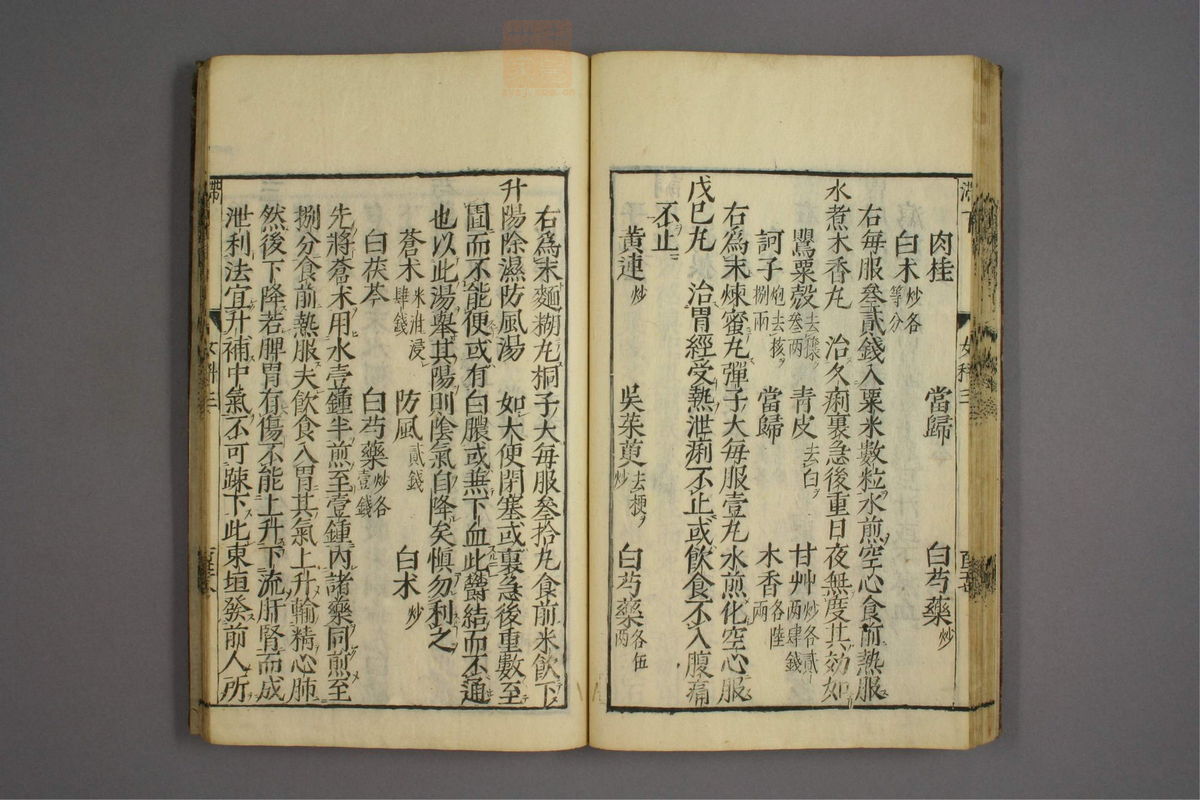 肉桂　當歸　白芍藥炒
白朮炒各等分
右每服叄貳錢入粟米數粒水煎空心食前熱服
水煮木香丸　治久痢裏急後重日夜無度其効如
罌粟殼去穰叄两　青皮去白　甘艸炒各貳两肆錢
訶子炮去核捌兩　當歸　木香各陸兩
右爲末煉蜜丸彈子大每服壹丸水煎化空心服
戊巳丸　治胃經受熱泄痢不止或飲食不入腹痛
不止
黄連炒　吳茱萸去梗炒　白芍藥各伍兩
右爲末麵糊丸桐子大每服叄拾丸食前米飲下
升陽除濕防風湯　如大便閉塞或裏急後重數至
圊而不能便或有白膿或無下血此欝結而不通
也以此湯舉其陽則陰氣自降矣愼勿利之
蒼朮米泔浸肆錢　防風貳錢　白朮炒
白茯苓　白芍藥炒各壹錢
先將蒼朮用水壹鍾半煎至壹鍾内諸藥同煎至
捌分食前熱服夫飲食入胃其氣上升輸精心肺
然後下降若脾胃有傷不能上升下流肝腎而成
泄利法宜升補中氣不可疎下此東垣發前人所
女科三